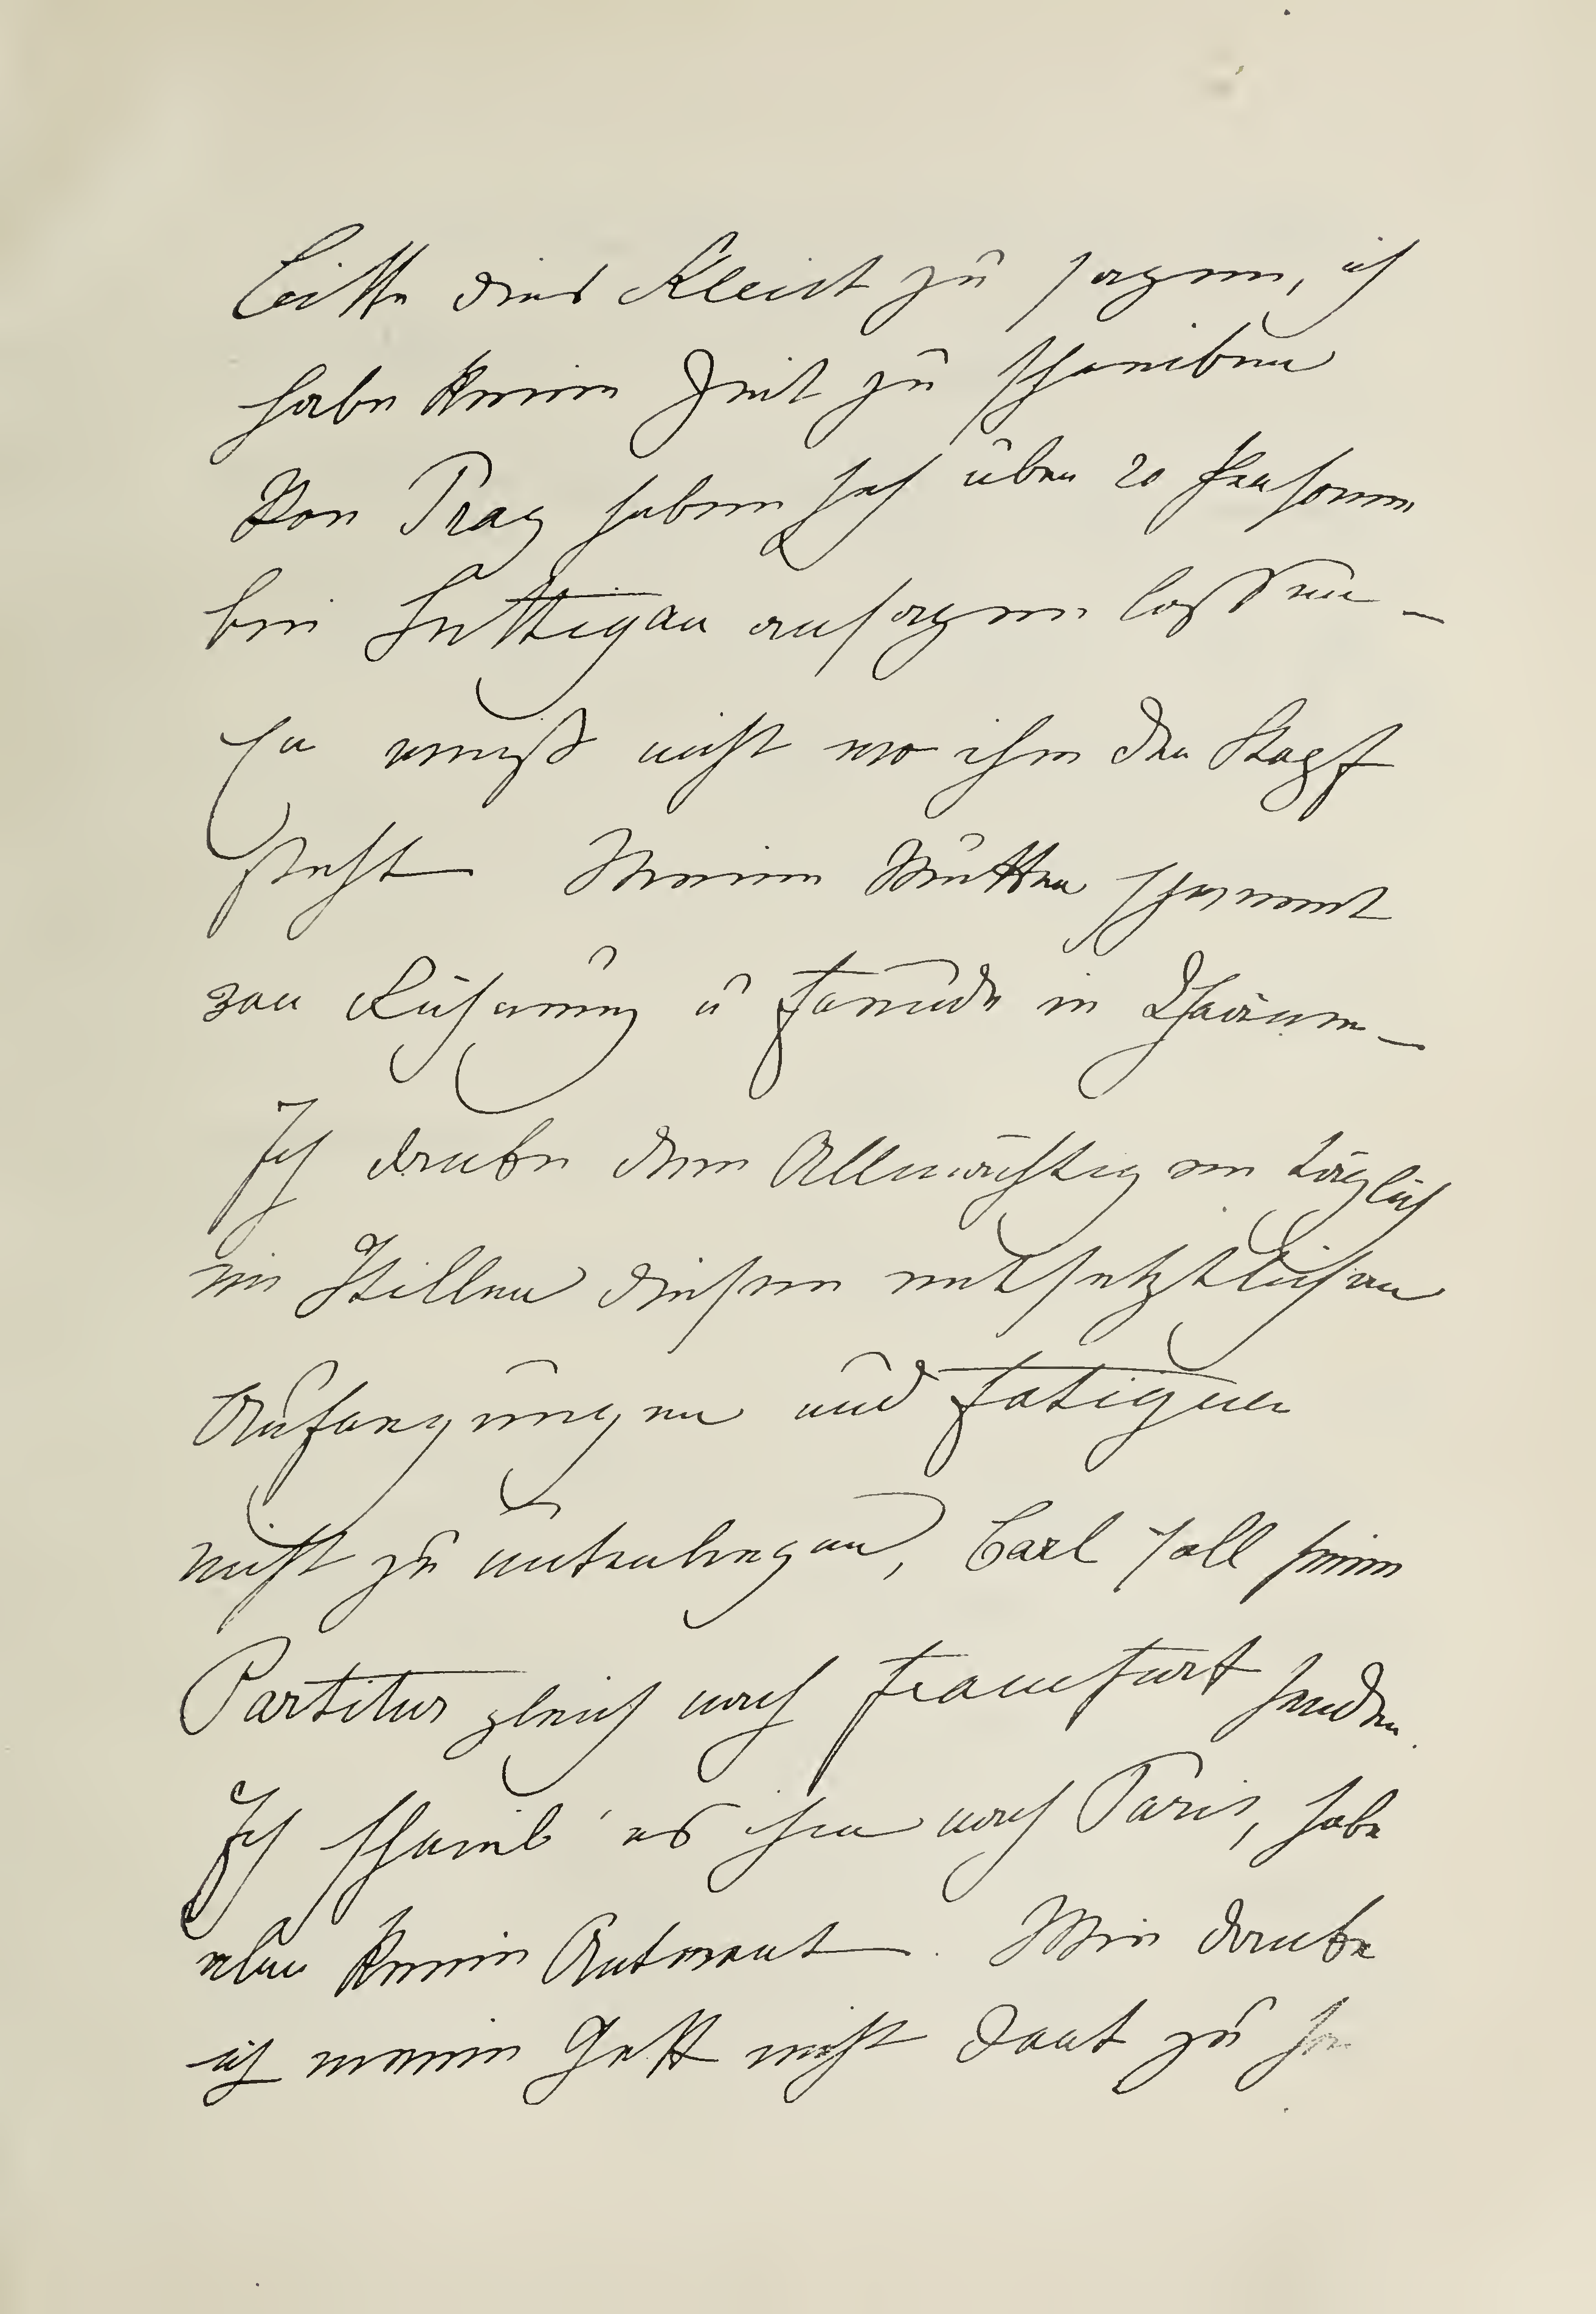 bitte dies Kleist zu sagen, ich
habe keine Zeit zu schreiben
Von Prag haben sich über 20 Personen
bei Lüttigau ansagen lassen –
Er weiß nicht wo ihm der Kopf
steht Meine Mutter schwimmt
vor Rührung u Freude in Thränen –
Ich danke dem Allmächtigen täglich
im Stillen diesen entsetzlichen
Aufregungen und Fatiguen
nicht zu unterliegen, Carl soll seine
Partitur gleich nach Frankfurt senden.
Ich schreib' es ihm nach Paris, habe
aber keine Antwort. Wie danke
ich meinem Gott nicht dort zu